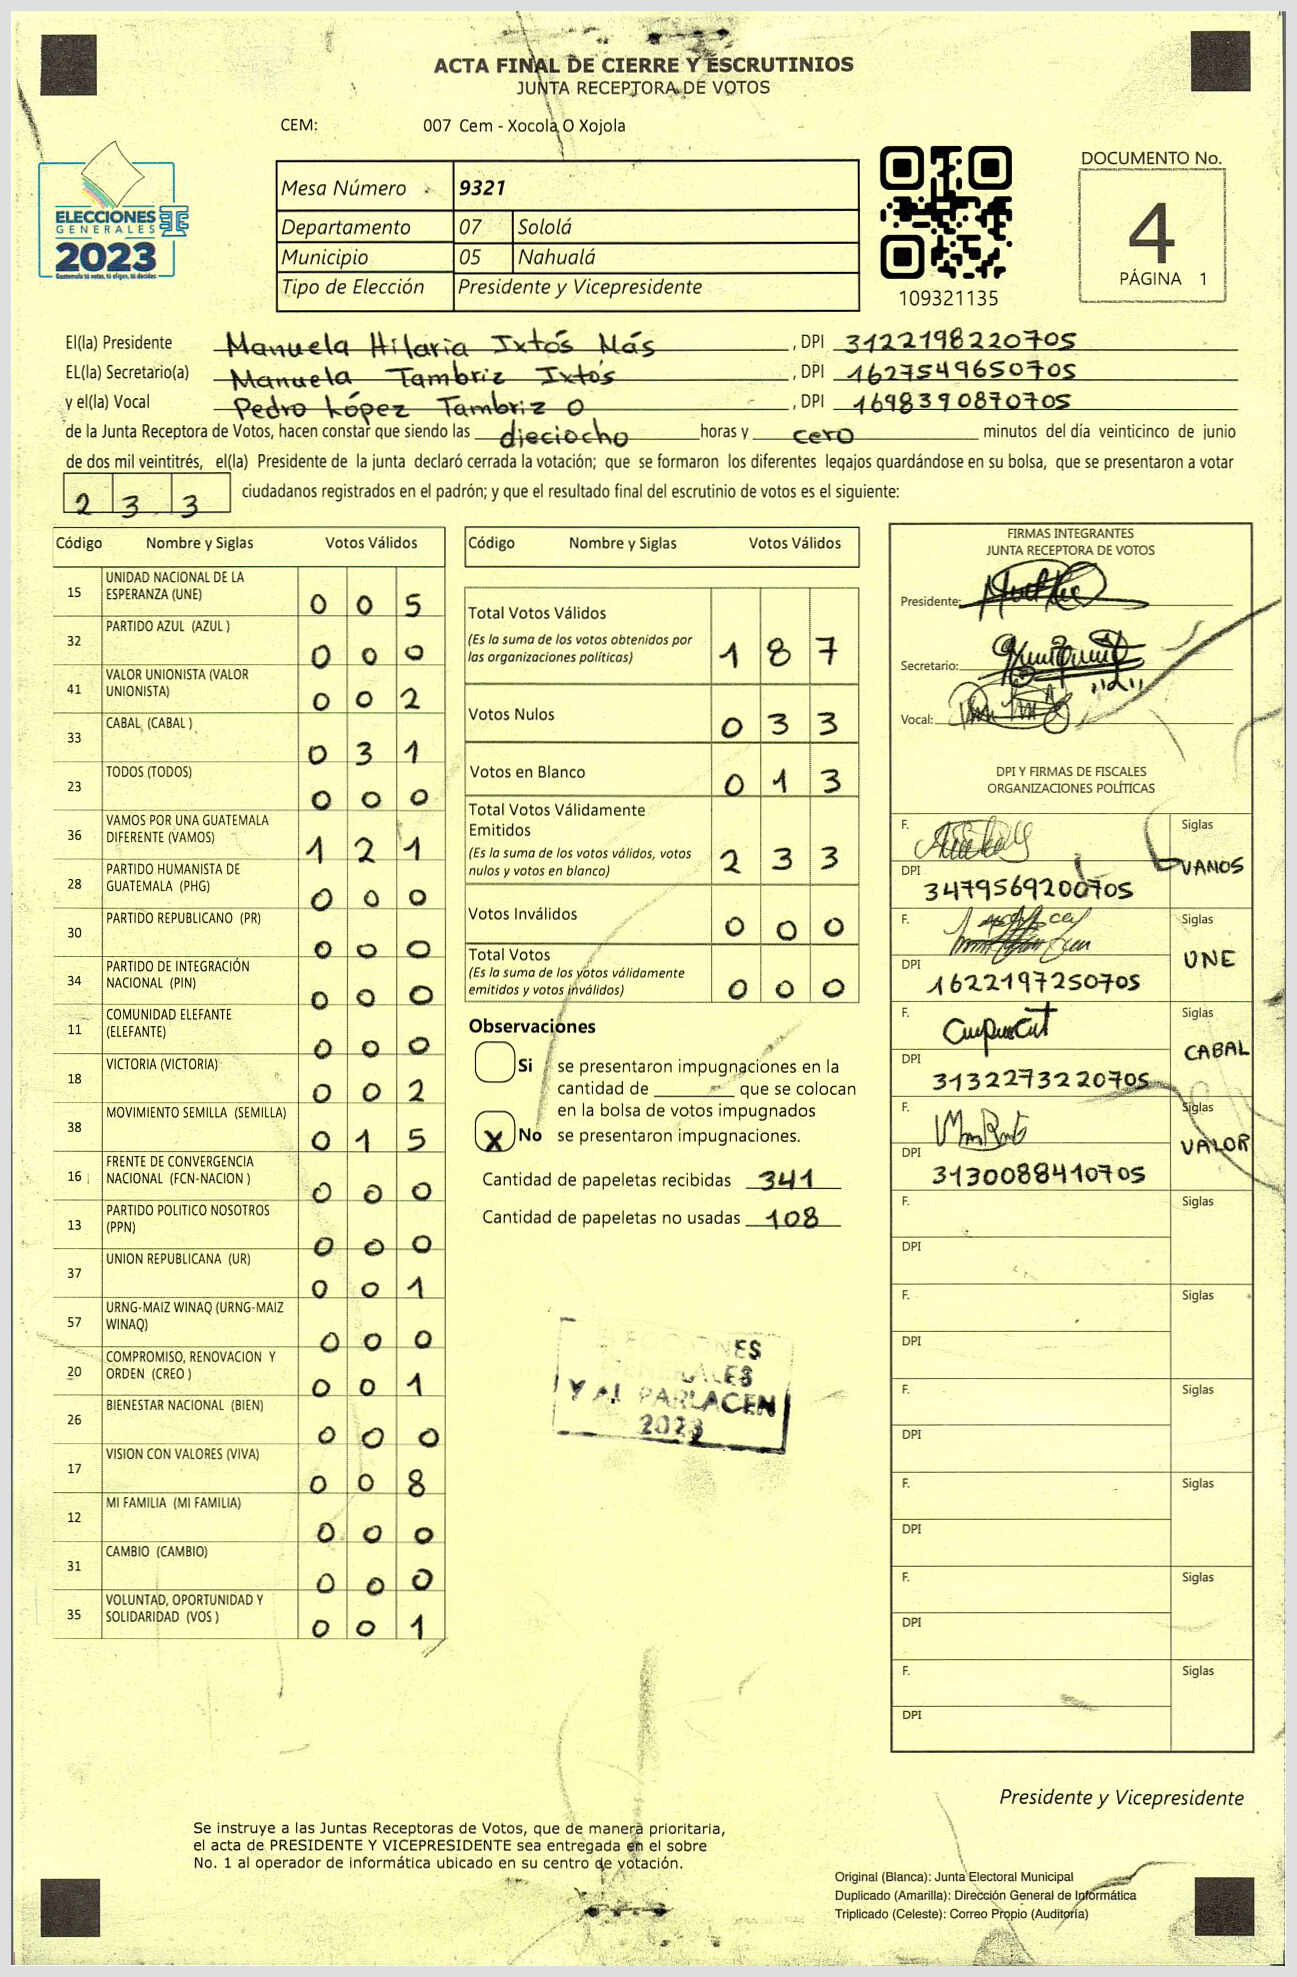 ACTA FINAL DE CIERRE Y ESCRUTINIOS
JUNTA RECEPTORA DE VOTOS
CEM: 007 Cem - Xocola O Xojola
ELECCIONES
GENERALES
2023
Guatemala tú votas, tú eliges, tú decides
Mesa Número 9321
Departamento 07 Sololá
Municipio 05 Nahualá
Tipo de Elección Presidente y Vicepresidente
109321135
DOCUMENTO No.
4
PÁGINA 1
El(la) Presidente Manuela Hilaria Ixtós Más , DPI 3122198220705
EL(la) Secretario(a) Manuela Tambriz Ixtós , DPI 1627549650705
y el(la) Vocal Pedro López Tambriz O , DPI 1698390870705
de la Junta Receptora de Votos, hacen constar que siendo las dieciocho horas y cero minutos del día veinticinco de junio
de dos mil veintitrés, el(la) Presidente de la junta declaró cerrada la votación; que se formaron los diferentes legajos guardándose en su bolsa, que se presentaron a votar
2 3 3 ciudadanos registrados en el padrón; y que el resultado final del escrutinio de votos es el siguiente:
Código Nombre y Siglas Votos Válidos
15 UNIDAD NACIONAL DE LA
ESPERANZA (UNE) 0 0 5
32 PARTIDO AZUL (AZUL ) 0 0 0
41 VALOR UNIONISTA (VALOR
UNIONISTA) 0 0 2
33 CABAL (CABAL ) 0 3 1
23 TODOS (TODOS) 0 0 0
36 VAMOS POR UNA GUATEMALA
DIFERENTE (VAMOS) 1 2 1
28 PARTIDO HUMANISTA DE
GUATEMALA (PHG) 0 0 0
30 PARTIDO REPUBLICANO (PR) 0 0 0
34 PARTIDO DE INTEGRACIÓN
NACIONAL (PIN) 0 0 0
11 COMUNIDAD ELEFANTE
(ELEFANTE) 0 0 0
18 VICTORIA (VICTORIA) 0 0 2
38 MOVIMIENTO SEMILLA (SEMILLA) 0 1 5
16 FRENTE DE CONVERGENCIA
NACIONAL (FCN-NACION ) 0 0 0
13 PARTIDO POLITICO NOSOTROS
(PPN) 0 0 0
37 UNION REPUBLICANA (UR) 0 0 1
57 URNG-MAIZ WINAQ (URNG-MAIZ
WINAQ) 0 0 0
20 COMPROMISO, RENOVACION Y
ORDEN (CREO ) 0 0 1
26 BIENESTAR NACIONAL (BIEN) 0 0 0
17 VISION CON VALORES (VIVA) 0 0 8
12 MI FAMILIA (MI FAMILIA) 0 0 0
31 CAMBIO (CAMBIO) 0 0 0
35 VOLUNTAD, OPORTUNIDAD Y
SOLIDARIDAD (VOS ) 0 0 1
Código Nombre y Siglas Votos Válidos
Total Votos Válidos
(Es la suma de los votos obtenidos por
las organizaciones políticas) 1 8 7
Votos Nulos 0 3 3
Votos en Blanco 0 1 3
Total Votos Válidamente
Emitidos
(Es la suma de los votos válidos, votos
nulos y votos en blanco) 2 3 3
Votos Inválidos 0 0 0
Total Votos
(Es la suma de los votos válidamente
emitidos y votos inválidos) 0 0 0
Observaciones
Si se presentaron impugnaciones en la
cantidad de ________ que se colocan
en la bolsa de votos impugnados
X No se presentaron impugnaciones.
Cantidad de papeletas recibidas 341
Cantidad de papeletas no usadas 108
ELECCIONES
GENERALES
Y AL PARLACEN
2023
FIRMAS INTEGRANTES
JUNTA RECEPTORA DE VOTOS
Presidente:
Secretario:
Vocal:
DPI Y FIRMAS DE FISCALES
ORGANIZACIONES POLÍTICAS
F. Siglas
VAMOS
DPI 3479569200705
F. Siglas
UNE
DPI 1622197250705
F. Siglas
CABAL
DPI 3132273220705
F. Siglas
VALOR
DPI 3130088410705
F. Siglas
DPI
F. Siglas
DPI
F. Siglas
DPI
F. Siglas
DPI
F. Siglas
DPI
F. Siglas
DPI
Presidente y Vicepresidente
Se instruye a las Juntas Receptoras de Votos, que de manera prioritaria,
el acta de PRESIDENTE Y VICEPRESIDENTE sea entregada en el sobre
No. 1 al operador de informática ubicado en su centro de votación.
Original (Blanca): Junta Electoral Municipal
Duplicado (Amarilla): Dirección General de Informática
Triplicado (Celeste): Correo Propio (Auditoría)